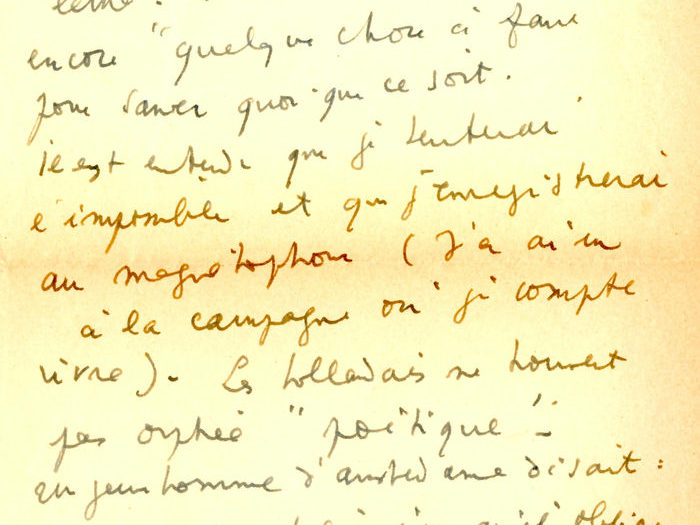 encore "quelque chose à faire
pour sauver quoi-que ce soit.
il est entendu que je tenterai
l'impossible et que j'enregistrerai
au magnétophone (J'en ai un
à la campagne où je compte
vivre). Les hollandais ne trouvent
pas orphée "poétique" -
un jeune homme d'amsterdam disait :